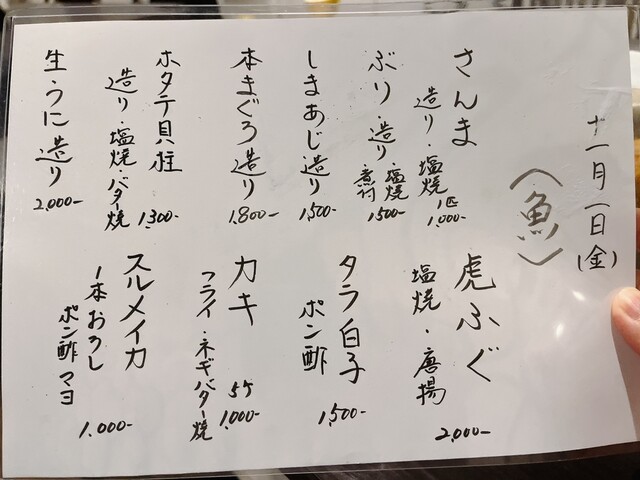 十一月一日(金)
(魚)
さんま
造り・塩焼
1匹
1,000-
ぶり・造り・塩焼
煮付
1,500-
しまあじ造り
1,500-
本まぐろ造り
1,800-
ホタテ貝柱
造り・塩焼・バター焼
1,300-
生・うに造り
2,000-
虎ふぐ
塩焼・唐揚
2,000-
タラ白子
ポン酢
1,500-
カキ
フライ・ネギバター焼
5ケ
1,000-
スルメイカ
1本おろし
ポン酢マヨ
1,000-